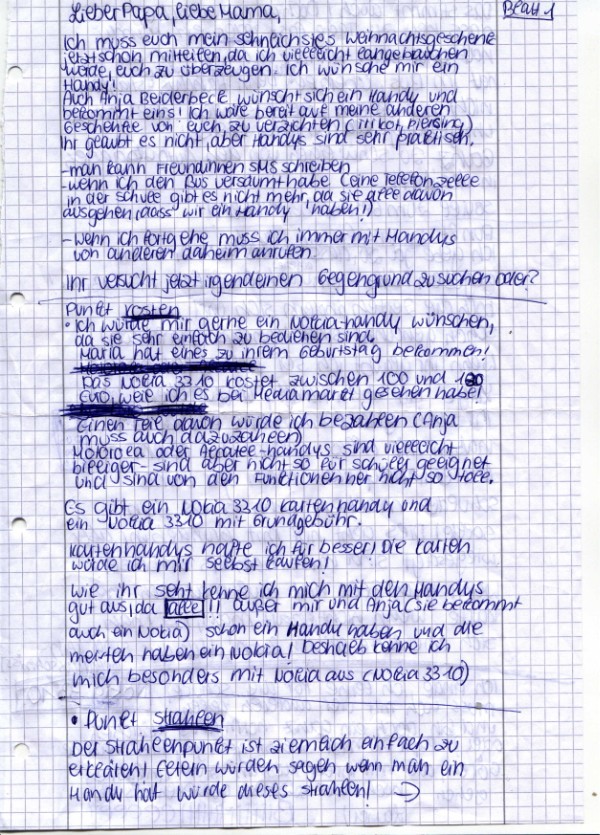 Blatt 1
Lieber Papa, liebe Mama,
Ich muss euch mein sehnlichstes Weihnachtsgeschenk
jetzt schon mitteilen, da ich vielleicht lange brauchen
würde, euch zu überzeugen. Ich wünsche mir ein
Handy!
Auch Anja Beiderbeck wünscht sich ein Handy und
bekommt eins! Ich wäre bereit auf meine anderen
Geschenke von euch zu verzichten (Trikot, Piersing)
Ihr glaubt es nicht, aber Handys sind sehr praktisch.
-man kann Freundinnen SMS schreiben
-wenn ich den Bus versäumt habe (eine Telefonzelle
in der Schule gibt es nicht mehr, da sie alle davon
ausgehen, dass wir ein Handy haben!)
-wenn ich fortgehe muss ich immer mit Handys
von anderen daheim anrufen
Ihr versucht jetzt irgendeinen Gegengrund zu suchen oder?
Punkt Kosten
• Ich würde mir gerne ein Nokia-handy wünschen,
da sie sehr einfach zu bedienen sind.
Maria hat eines zu ihrem Geburtstag bekommen!
Das Nokia 3310 kostet zwischen 100 und
Euro, weil ich es bei Mediamarkt gesehen habe!
Einen Teil davon würde ich bezahlen (Anja
muss auch dazuzahlen)
Motorola oder Alcatel-handys sind vielleicht
billiger - sind aber nicht so für Schüler geeignet
und sind von den Funktionen her nicht so toll.
Es gibt ein Nokia 3310 Kartenhandy und
ein Nokia 3310 mit Grundgebühr.
Kartenhandys halte ich für besser! Die Karten
würde ich mir selbst kaufen!
Wie ihr seht kenne ich mich mit den Handys
gut aus, da alle !! außer mir und Anja (sie bekommt
auch ein Nokia) schon ein Handy haben und die
meisten haben ein Nokia! Deshalb kenne ich
mich besonders mit Nokia aus (Nokia 3310)
• Punkt Strahlen
Der Strahlenpunkt ist ziemlich einfach zu
erklären! Eltern würden sagen wenn man ein
Handy hat würde dieses strahlen! →